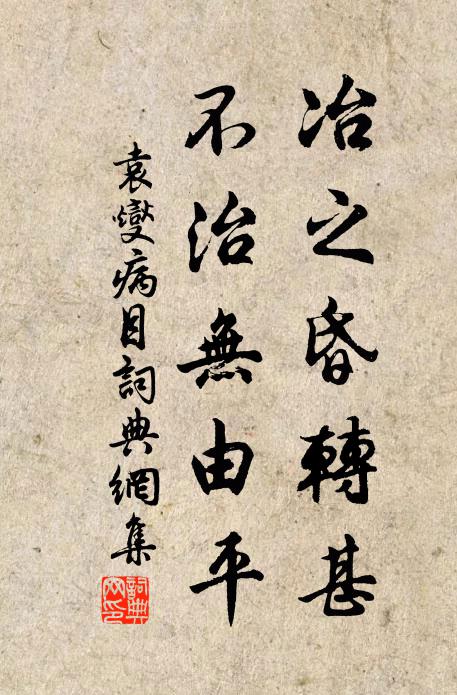 冶之昏轉甚
不治無由平
袁燮病目詞典網集
詞典網印